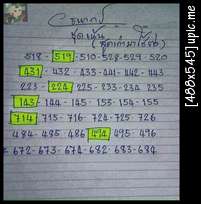 518 - 519 - 510 - 528 - 529 - 520
431 - 432 - 433 - 441 - 442 - 443
223 - 224 - 225 - 233 - 234 - 235
143 - 144 - 145 - 153 - 154 - 155
714 - 715 - 716 - 724 - 725 - 726
484 - 485 - 486 494 - 495 - 496
672 - 673 - 674 - 682 - 683 - 684
[488x545] upic.me